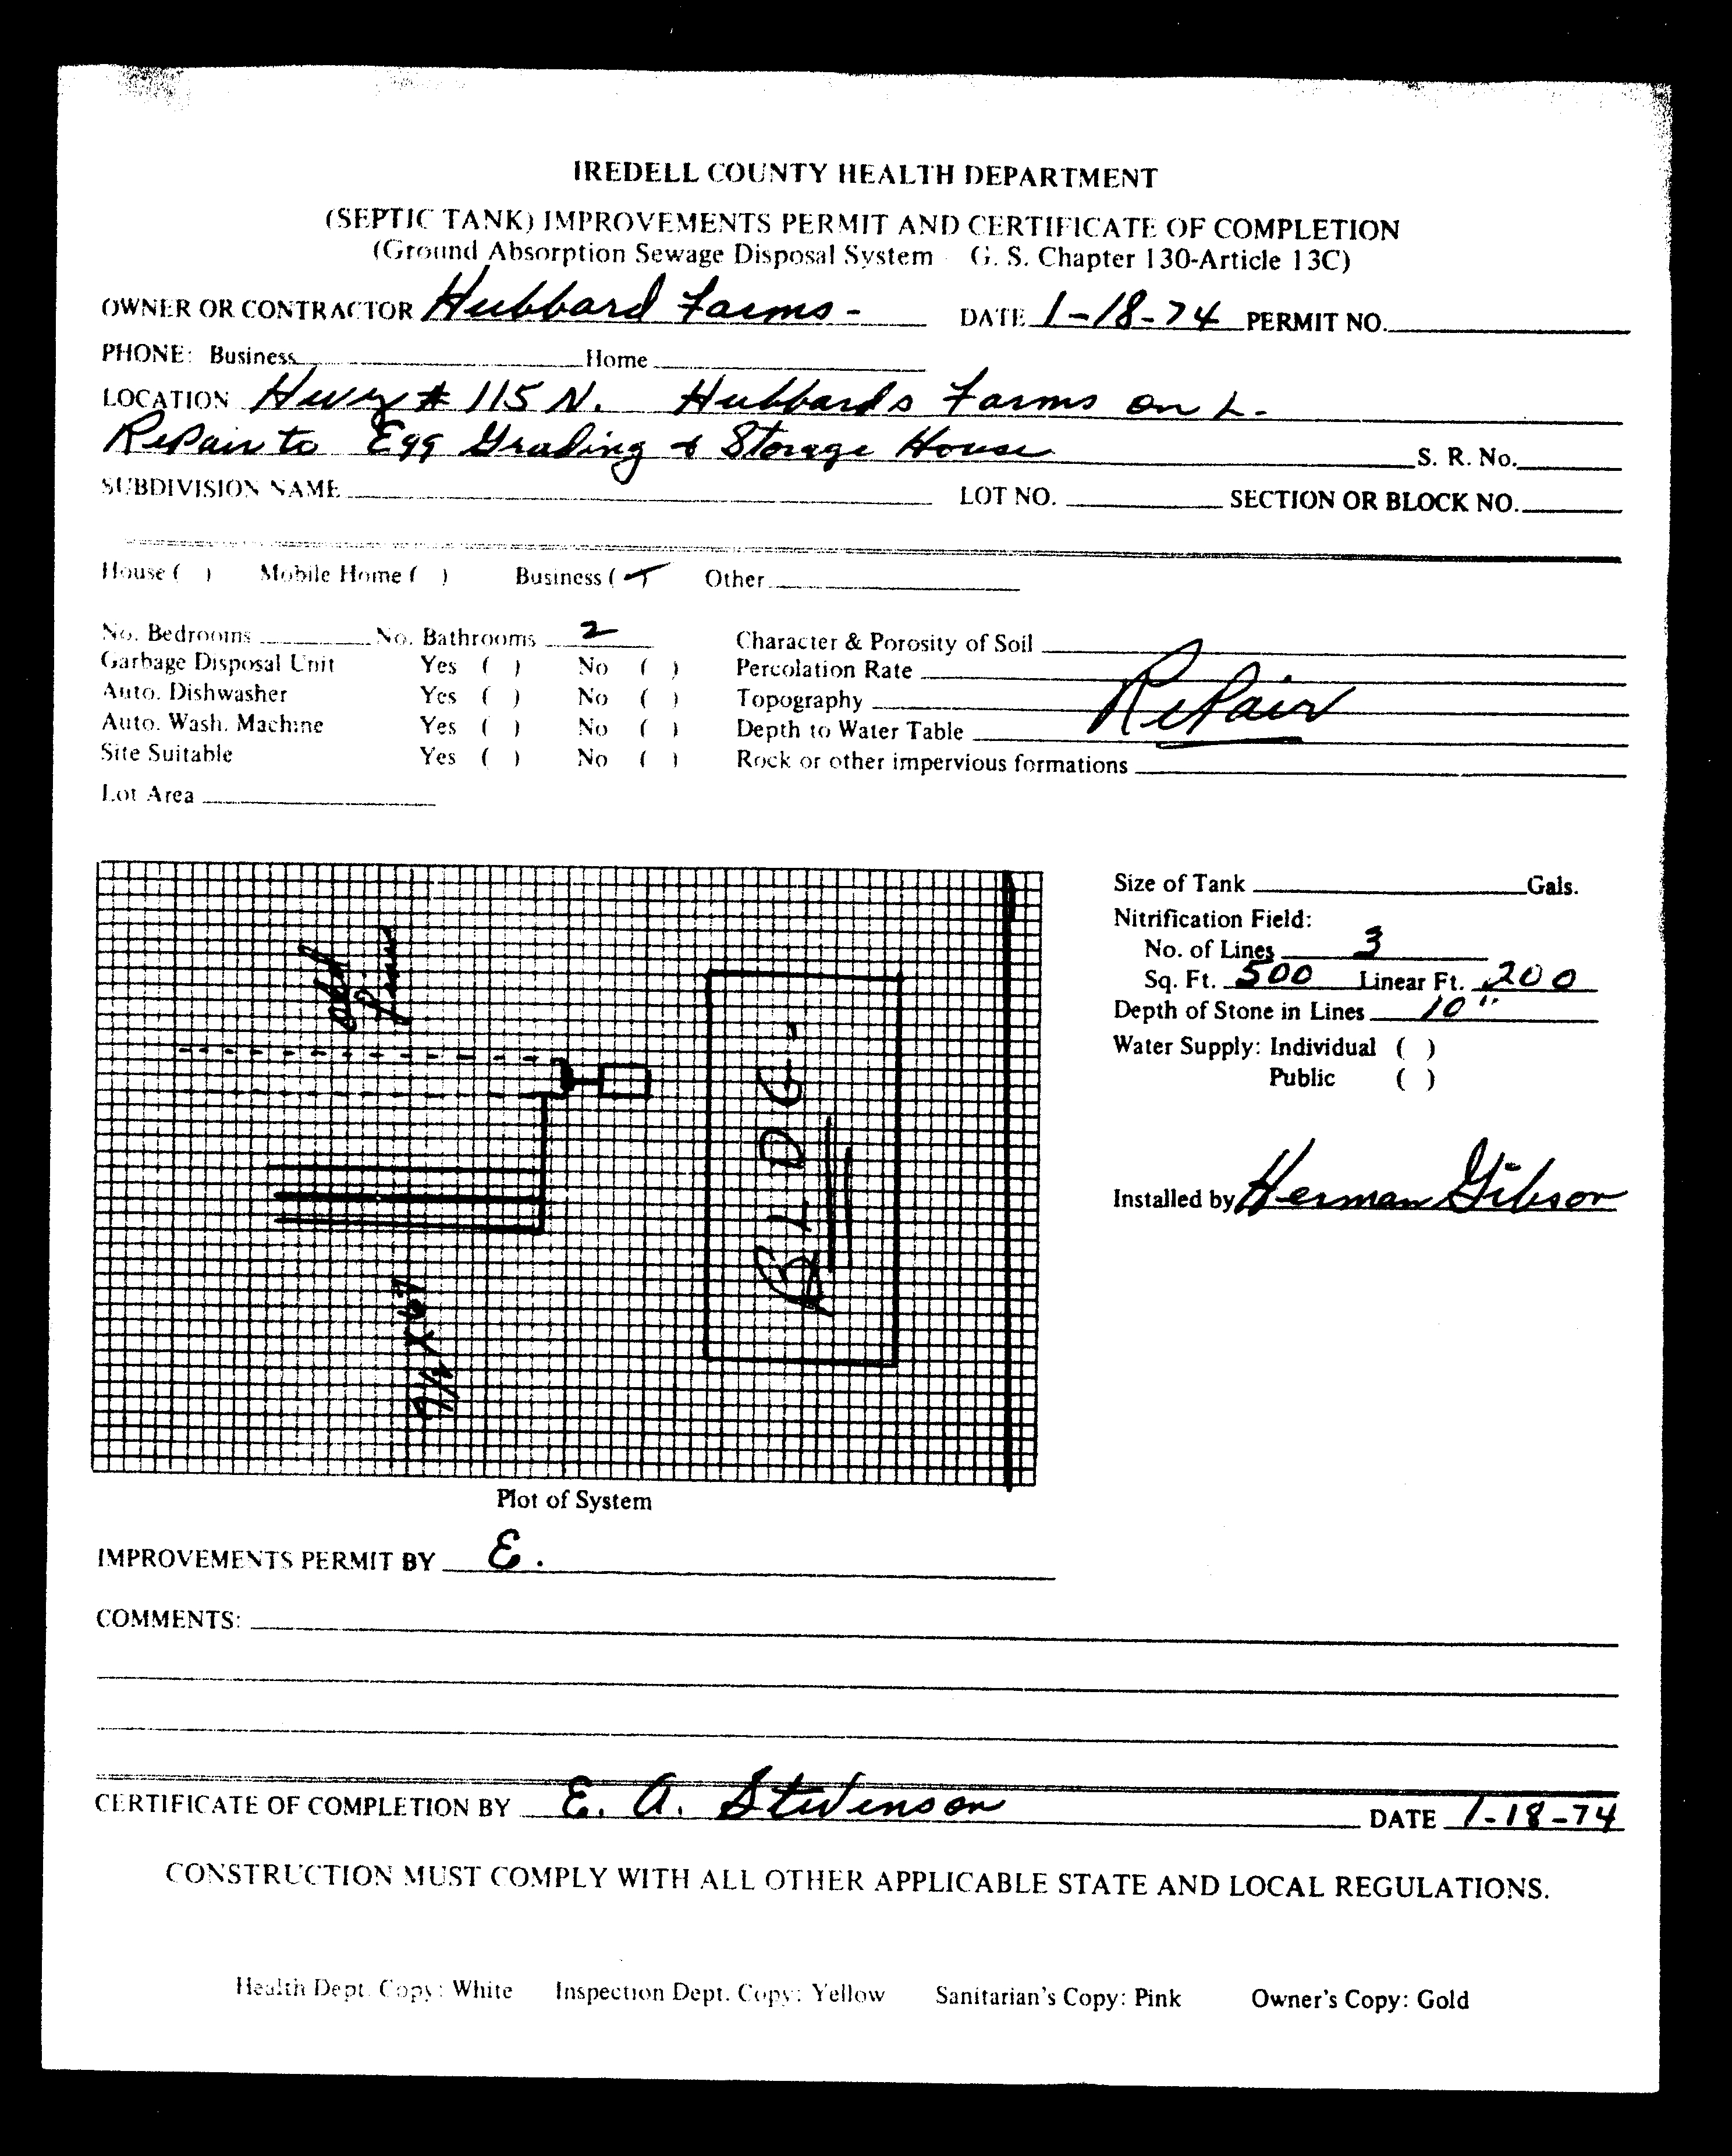 IREDELL COUNTY HEALTH DEPARTMENT
(SEPTIC TANK) IMPROVEMENTS PERMIT AND CERTIFICATE OF COMPLETION
(Ground Absorption Sewage Disposal System G. S. Chapter 130-Article 13C)
OWNER OR CONTRACTOR Hubbard Farms - DATE 1-18-74 PERMIT NO.
PHONE: Business Home
LOCATION Hwy # 115 N. Hubbards Farms on L.
Repair to Egg Grading & Storage House S. R. No.
SUBDIVISION NAME LOT NO. SECTION OR BLOCK NO.
House ( ) Mobile Home ( ) Business ( ✓ Other
No. Bedrooms No. Bathrooms 2 Character & Porosity of Soil
Garbage Disposal Unit Yes ( ) No ( ) Percolation Rate
Auto. Dishwasher Yes ( ) No ( ) Topography Repair
Auto. Wash. Machine Yes ( ) No ( ) Depth to Water Table
Site Suitable Yes ( ) No ( ) Rock or other impervious formations
Lot Area
Size of Tank Gals.
Nitrification Field:
No. of Lines 3
Sq. Ft. 500 Linear Ft. 200
Depth of Stone in Lines 10"
Water Supply: Individual ( )
Public ( )
Installed by Herman Gibson
old
BLDG-
Plot of System
IMPROVEMENTS PERMIT BY E.
COMMENTS:
CERTIFICATE OF COMPLETION BY E. A. Stevenson DATE 1-18-74
CONSTRUCTION MUST COMPLY WITH ALL OTHER APPLICABLE STATE AND LOCAL REGULATIONS.
Health Dept. Copy: White Inspection Dept. Copy: Yellow Sanitarian's Copy: Pink Owner's Copy: Gold